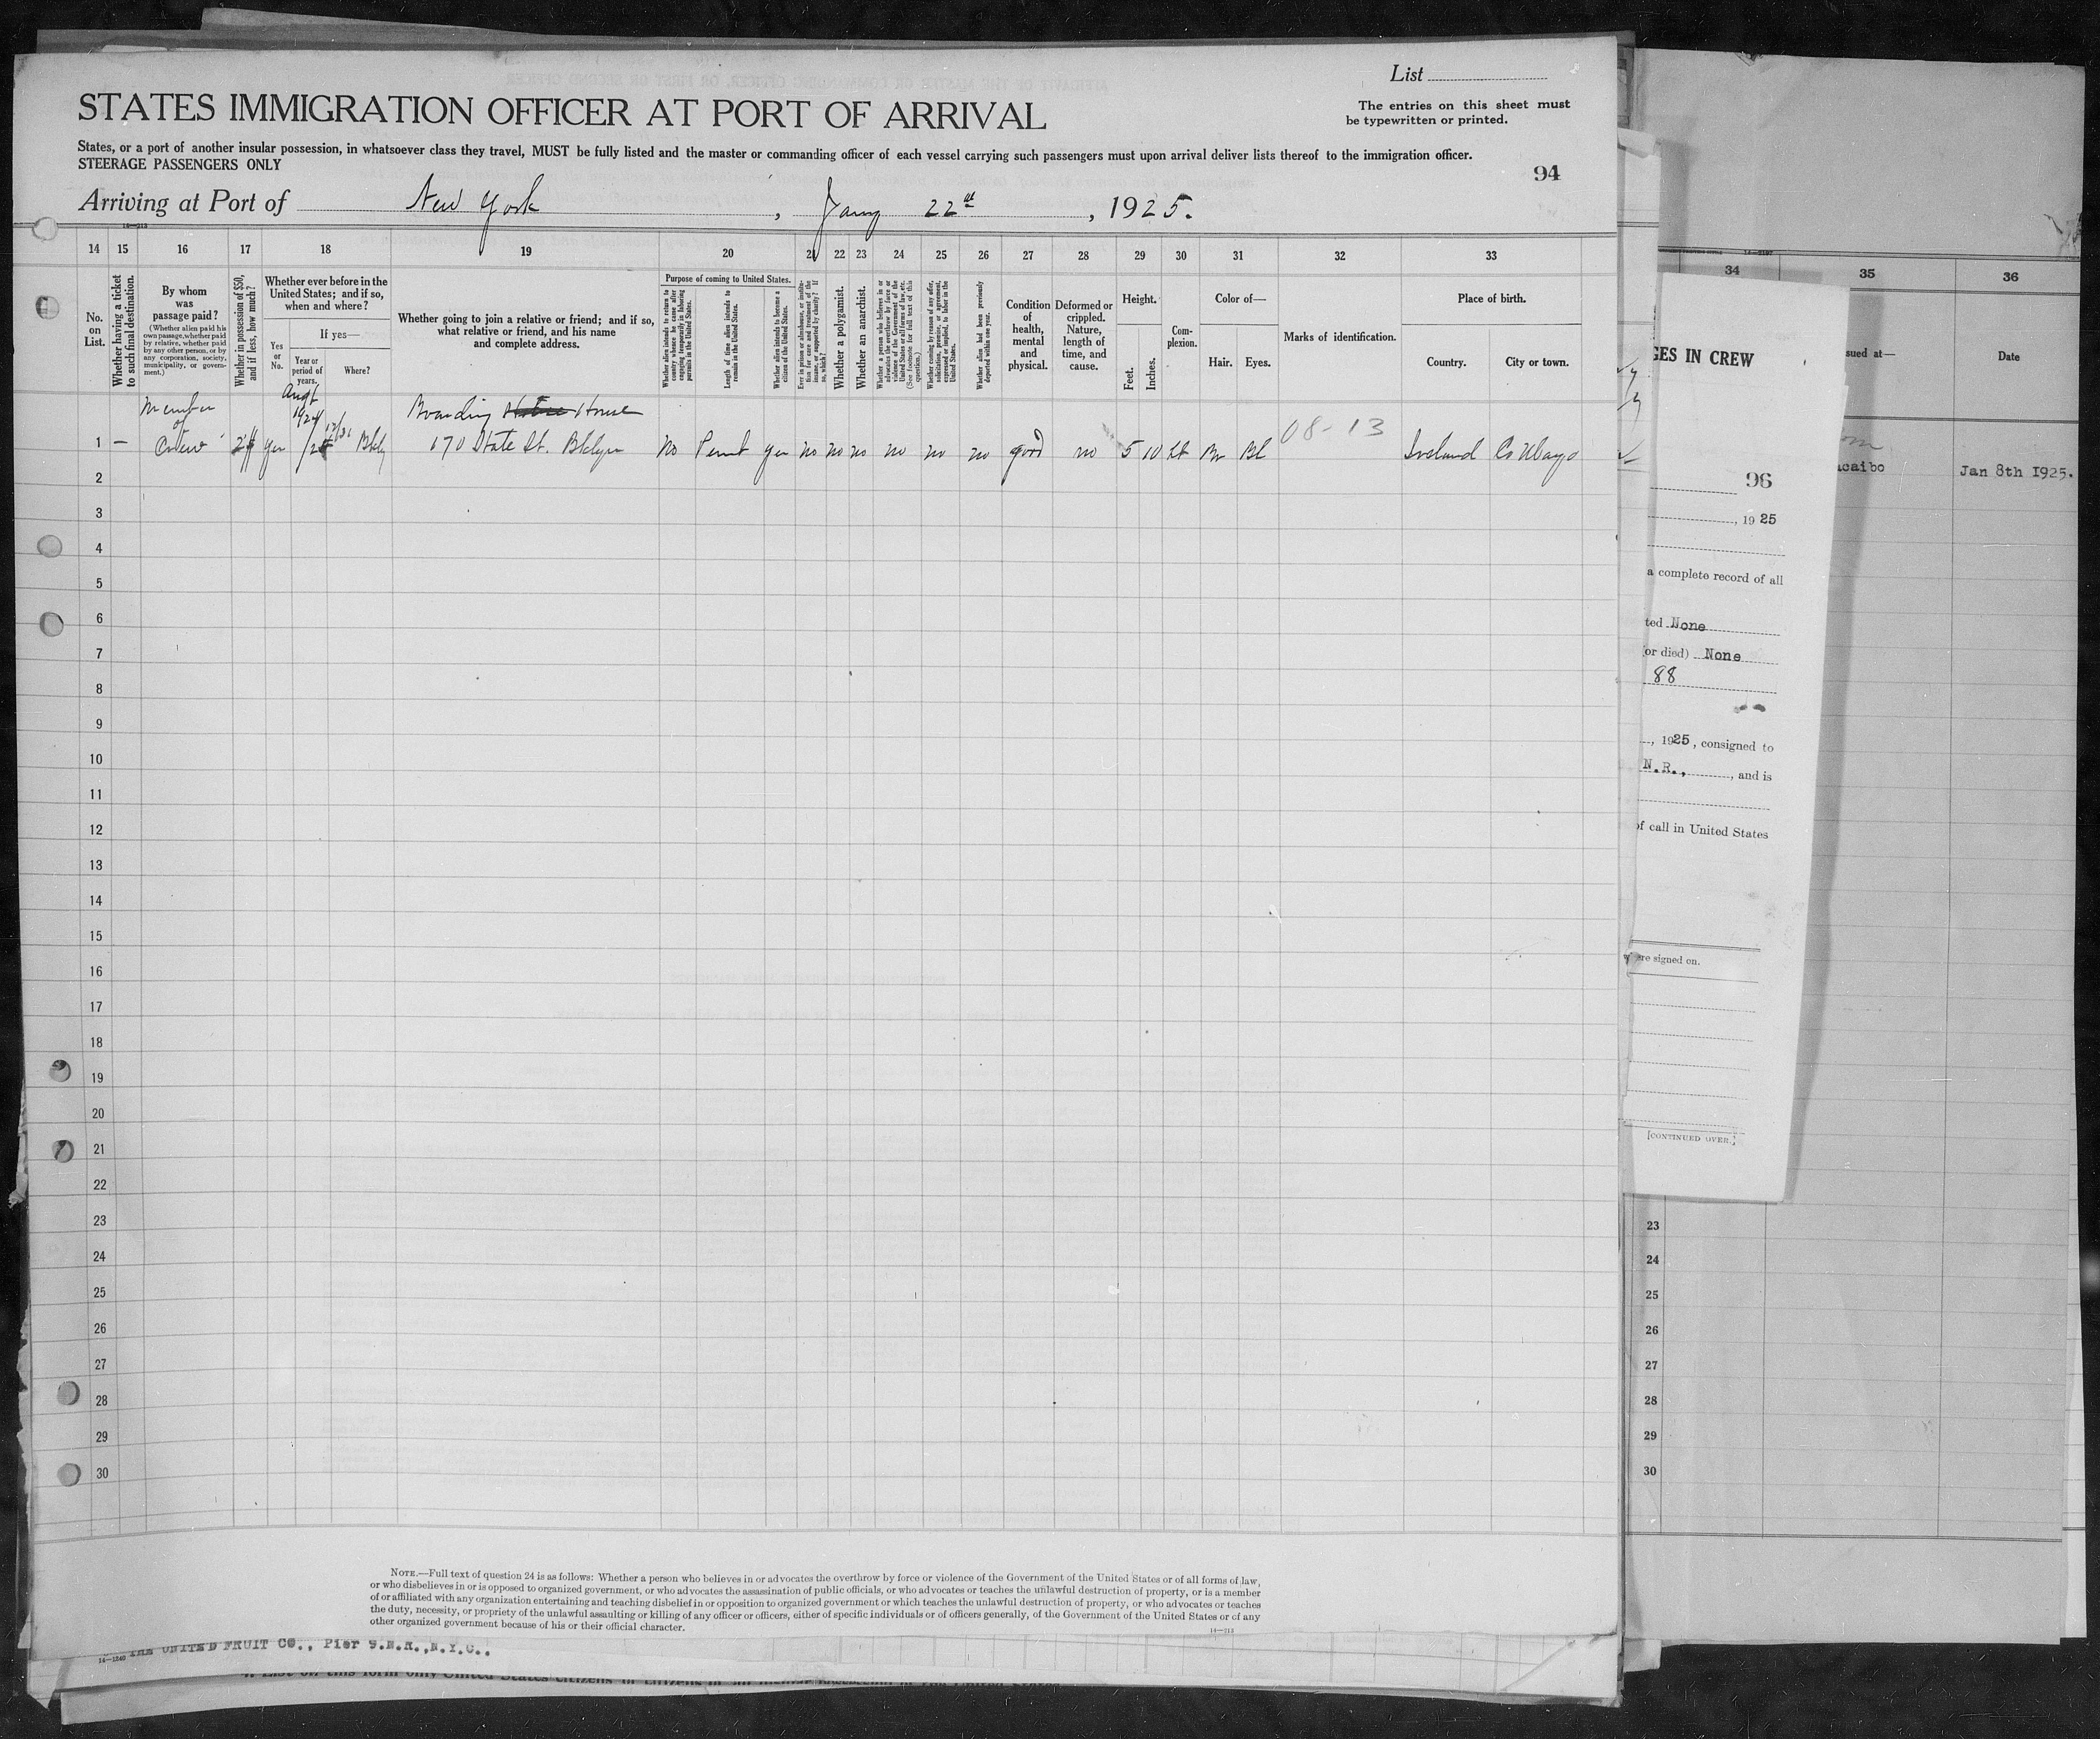 List
The entries on this sheet must
be typewritten or printed.
STATES IMMIGRATION OFFICER AT PORT OF ARRIVAL
States, or a port of another insular possession, in whatsoever class they travel, MUST be fully listed and the master or commanding officer of each vessel carrying such passengers must upon arrival deliver lists thereof to the immigration officer.
STEERAGE PASSENGERS ONLY
94
Arriving at Port of New York, Jany 22nd, 1925.
14—213
14 15 16 17 18 19 20 21 22 23 24 25 26 27 28 29 30 31 32 33
No.
on
List.
Whether having a ticket
to such final destination.
By whom
was
passage paid?
(Whether alien paid his
own passage, whether paid
by relative, whether paid
by any other person, or by
any corporation, society,
municipality, or govern-
ment.)
Whether in possession of $50,
and if less, how much?
Whether ever before in the
United States; and if so,
when and where?
Yes
or
No.
If yes—
Year or
period of
years.
Where?
Whether going to join a relative or friend; and if so,
what relative or friend, and his name
and complete address.
Purpose of coming to United States.
Whether alien intends to return to
country whence he came after
engaging temporarily in laboring
pursuits in the United States.
Length of time alien intends to
remain in the United States.
Whether alien intends to become a
citizen of the United States.
Ever in prison or almshouse, or institu-
tion for care and treatment of the
insane, or supported by charity? If
so, which?
Whether a polygamist.
Whether an anarchist.
Whether a person who believes in or
advocates the overthrow by force or
violence of the Government of the
United States or all forms of law, etc.
(See footnote for full text of this
question.)
Whether coming by reason of any offer,
solicitation, promise, or agreement,
expressed or implied, to labor in the
United States.
Whether alien had been previously
deported within one year.
Condition
of
health,
mental
and
physical.
Deformed or
crippled.
Nature,
length of
time, and
cause.
Height.
Feet.
Inches.
Com-
plexion.
Color of—
Hair. Eyes.
Marks of identification.
Place of birth.
Country. City or town.
Member
of
Crew
Augt
1924
12/31
Boarding House
08-13
1 — yes Bkly 170 State St. Bklyn no Permt yes no no no no no no good no 5 10 Lt Br Bl Ireland Co Mayo
2
3
4
5
6
7
8
9
10
11
12
13
14
15
16
17
18
19
20
21
22
23
24
25
26
27
28
29
30
NOTE.—Full text of question 24 is as follows: Whether a person who believes in or advocates the overthrow by force or violence of the Government of the United States or of all forms of law,
or who disbelieves in or is opposed to organized government, or who advocates the assassination of public officials, or who advocates or teaches the unlawful destruction of property, or is a member
of or affiliated with any organization entertaining and teaching disbelief in or opposition to organized government or which teaches the unlawful destruction of property, or who advocates or teaches
the duty, necessity, or propriety of the unlawful assaulting or killing of any officer or officers, either of specific individuals or of officers generally, of the Government of the United States or of any
other organized government because of his or their official character.
14—213
14—1240
THE UNITED FRUIT CO., Pier 9.N.R.,N.Y.C.,
4. List on this form only United States citizens or citizens of an insular possession of the United States
34 35 36
GES IN CREW
sued at—
Date
acaibo
Jan 8th 1925.
96
, 1925
a complete record of all
ted None
(or died) None
88
, 1925, consigned to
N.R., , and is
of call in United States
ere signed on.
[CONTINUED OVER.]
23
24
25
26
27
28
29
30